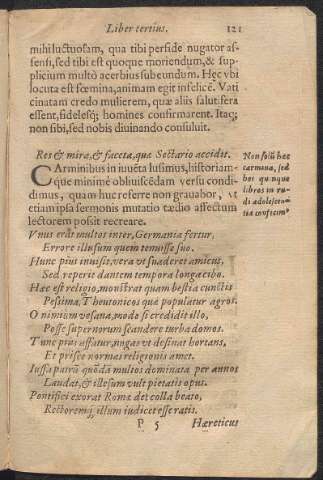 Liber tertius. 121
mihi luctuosam, qua tibi perfide nugator as-
sensi, sed tibi est quoque moriendum, & sup-
plicium multò acerbius subeundum. Hęc vbi
locuta est fœmina, animam egit infelicē. Vati
cinatam credo mulierem, quæ aliis salutifera
essent, si delesseq; homines confirmarent. Itaq;
non sibi, sed nobis diuinando consuluit.
Res & mira, & faceta, quæ Sectario accidit.
CArminibus in iuuēta lusimus, historiam-
que minimè obliuiscēdam versu condi-
dimus, quam huc referre non grauabor, vt
etiam ipsa sermonis mutatio tædio affectum
lectorem possit recreare.
Non solū hæc
carmina, sed
hos quinque
libros in ru-
di adolescen-
tia confecim9
Vnus erāt multos inter, Germania fertur,
Errore illusum quem tenuisse suo.
Hunc pius inuisit, vera vt suaderet amicus,
Sed reperit dantem tempora longa cibo.
Hæc est religio, monstrat quam bestia cunctis
Pessima, Theutonicos quæ populatur agros.
O nimium vesana, modo si credidit illo,
Posse supernorum scandere turba domos.
Tunc pius affatur, nugas vt desinat hortans,
Et priscę normas religionis amet.
Iussa patrū quōdā multos dominata per annos
Laudat, & illesum vult pietatis opus.
Pontifici exorat Romæ det colla beato,
Rectoremq; illum iudicet esse ratis.
P 5 Hæreticus